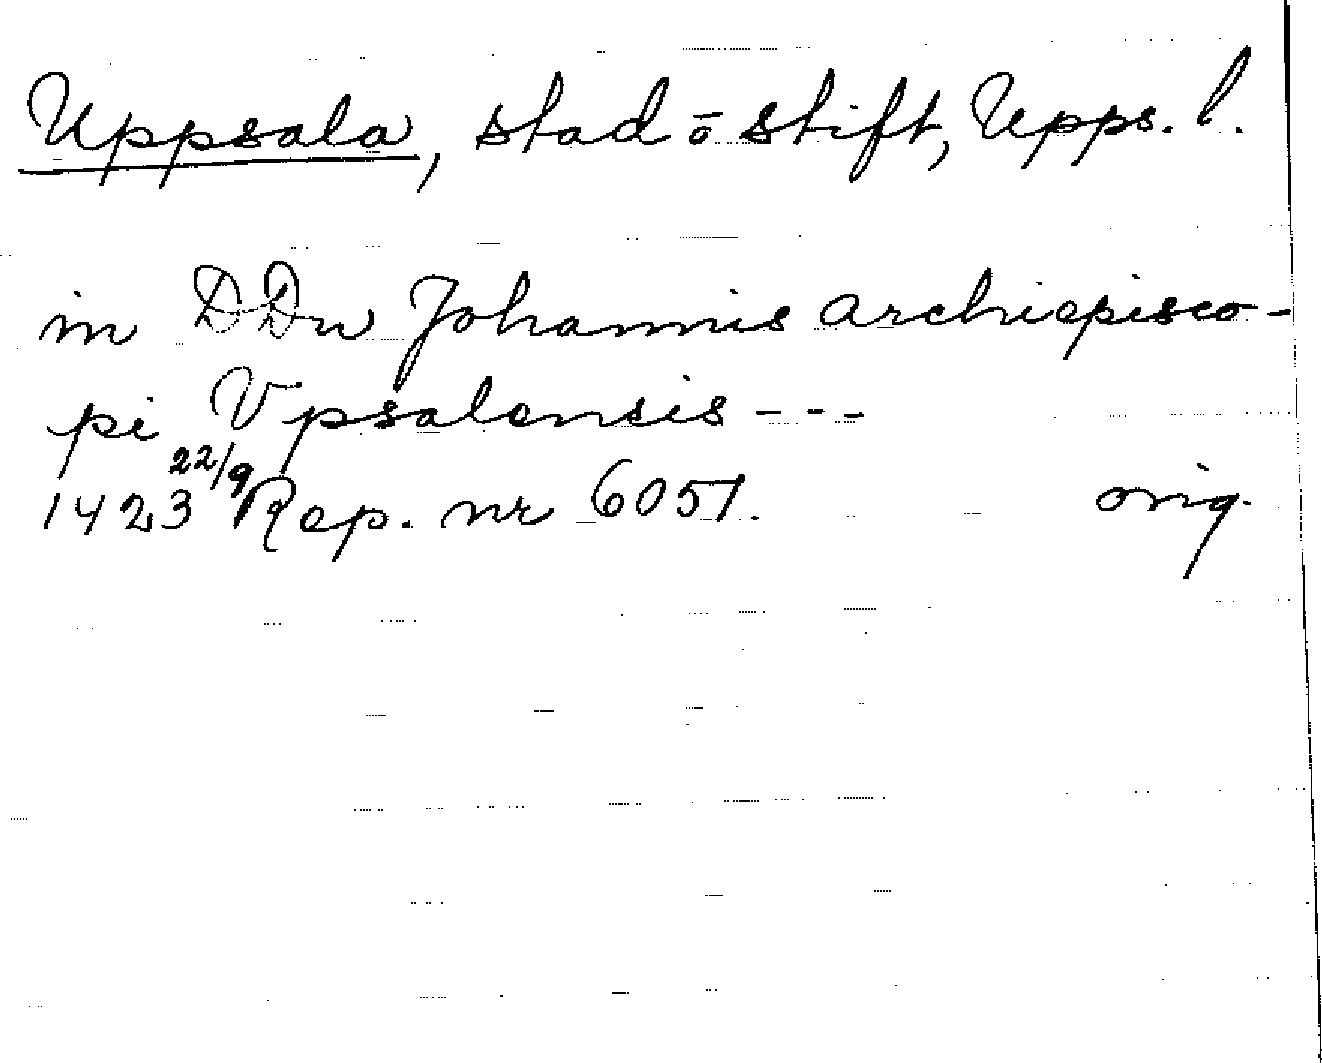 Uppsala, stad ō stift, Upps. l.
in D Dn Johannis archiepisco-
pi Vpsalensis ---
1423 22/9 Rep. nr 6051. orig.